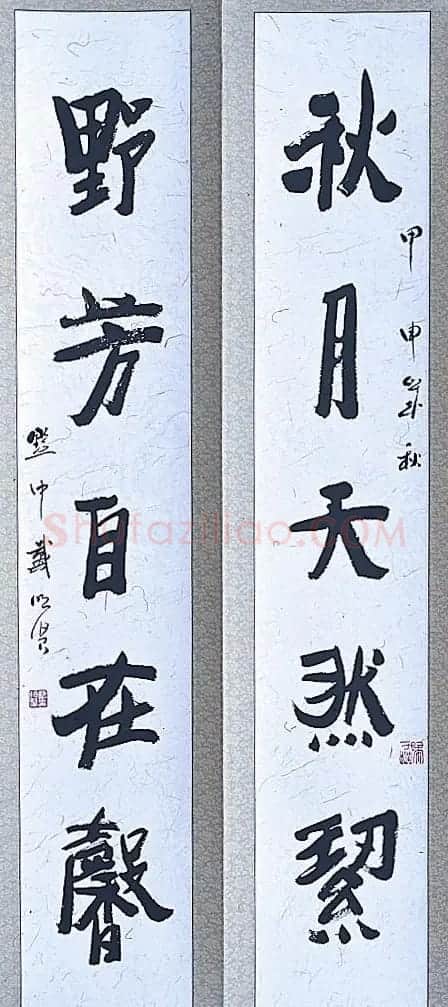 秋月天然絜
甲申年秋
野芳自在馨
黔中戴明贤
Shufaziliao.COM